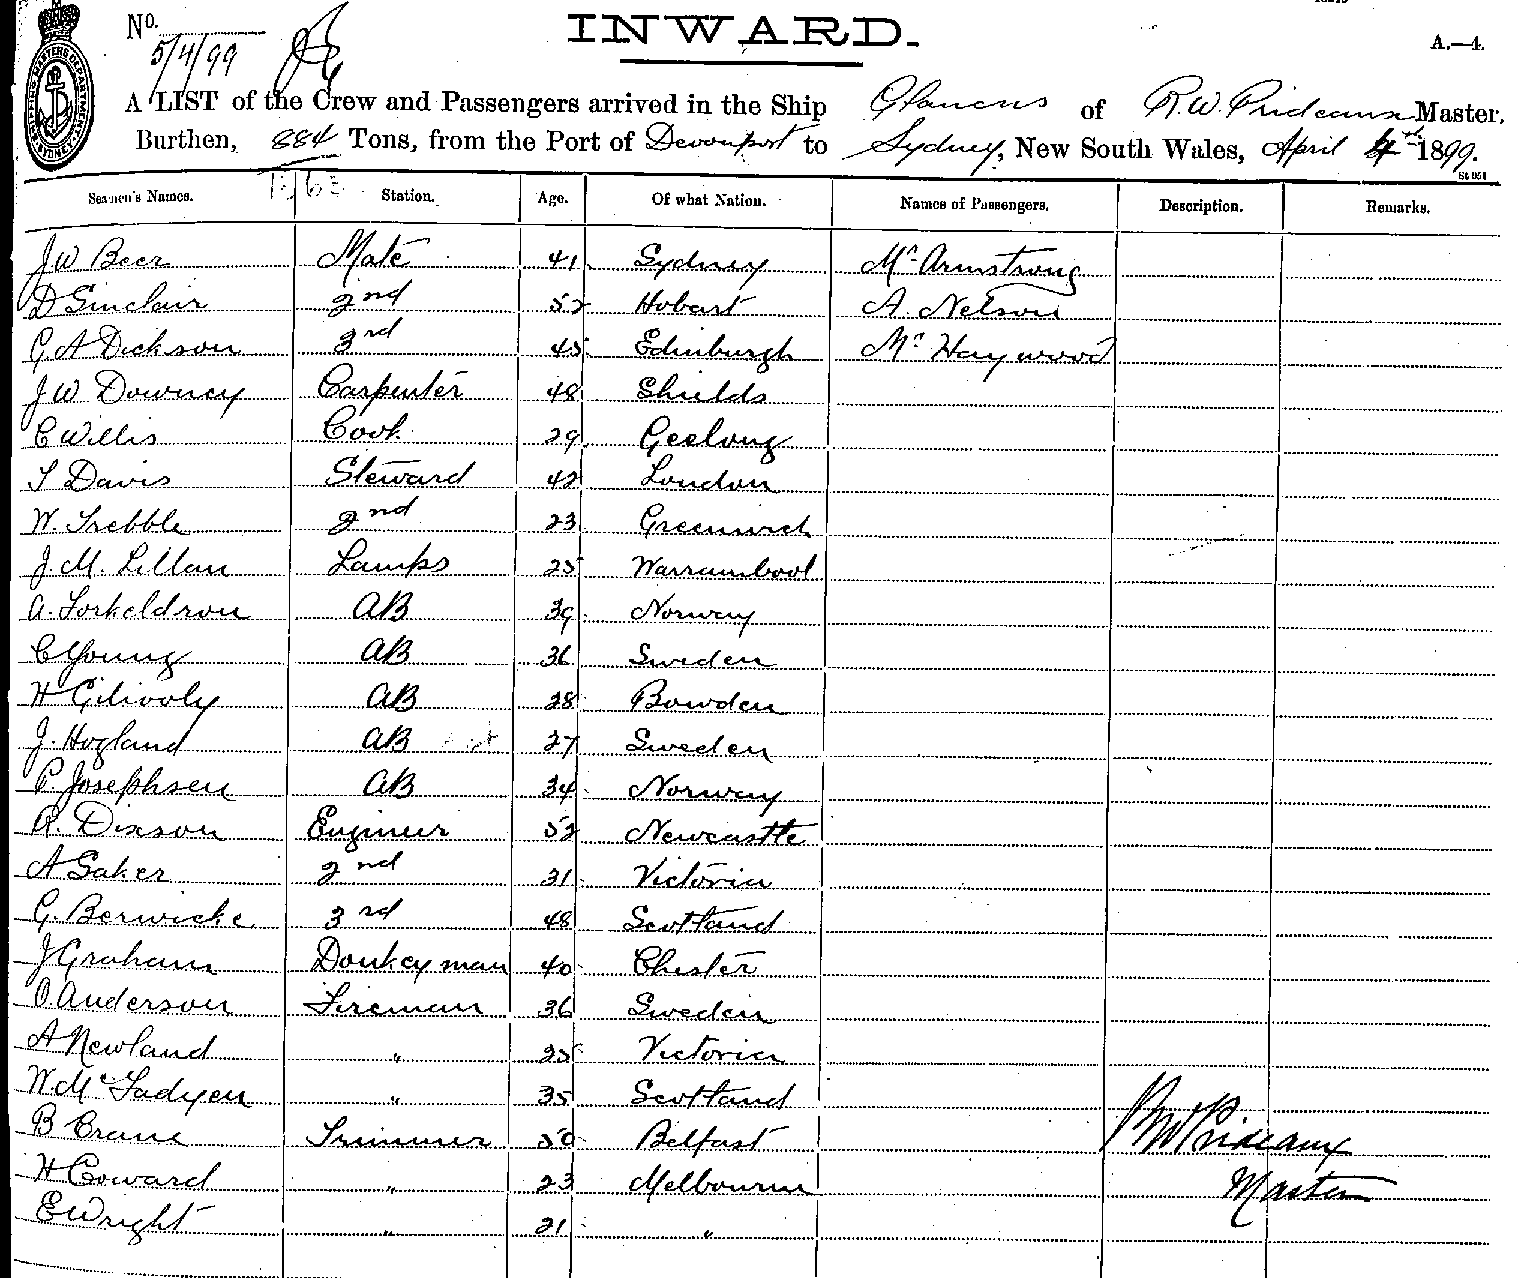 No. 5/4/99
INWARD.
A.—4.
A LIST of the Crew and Passengers arrived in the Ship Glaucus of R.W. Prideaux Master,
Burthen, 884 Tons, from the Port of Devonport to Sydney, New South Wales, April 4th 1899.
Seamen's Names. Station. Age. Of what Nation. Names of Passengers. Description. Remarks.
J W Beer Mate 41 Sydney Mr. Armstrong
D Sinclair 2nd 52 Hobart A. Nelson
G A Dickson 3rd 45 Edinburgh Mr. Haywood
J W Downey Carpenter 48 Shields
C Willis Cook 29 Geelong
T Davis Steward 42 London
W. Trebble 2nd 23 Greenwich
J. M. Lillan Lamps 25 Warrambool
A. Torkeldron AB 39 Norway
C Young AB 36 Sweden
H Gilivoly AB 28 Bowden
J. Hogland AB 27 Sweden
P. Josephsen AB 34 Norway
A. Dixson Engineer 52 Newcastle
A Saker 2nd 31 Victoria
G. Berwicke 3rd 48 Scotland
J Graham Donkeyman 40 Chester
O. Anderson Fireman 36 Sweden
A Newland " 25 Victoria
W. Mc Fadyen " 35 Scotland
B Crane Trimmer 50 Belfast
R W Prideaux
H Coward " 23 Melbourne
Master
E Wright " 21 "